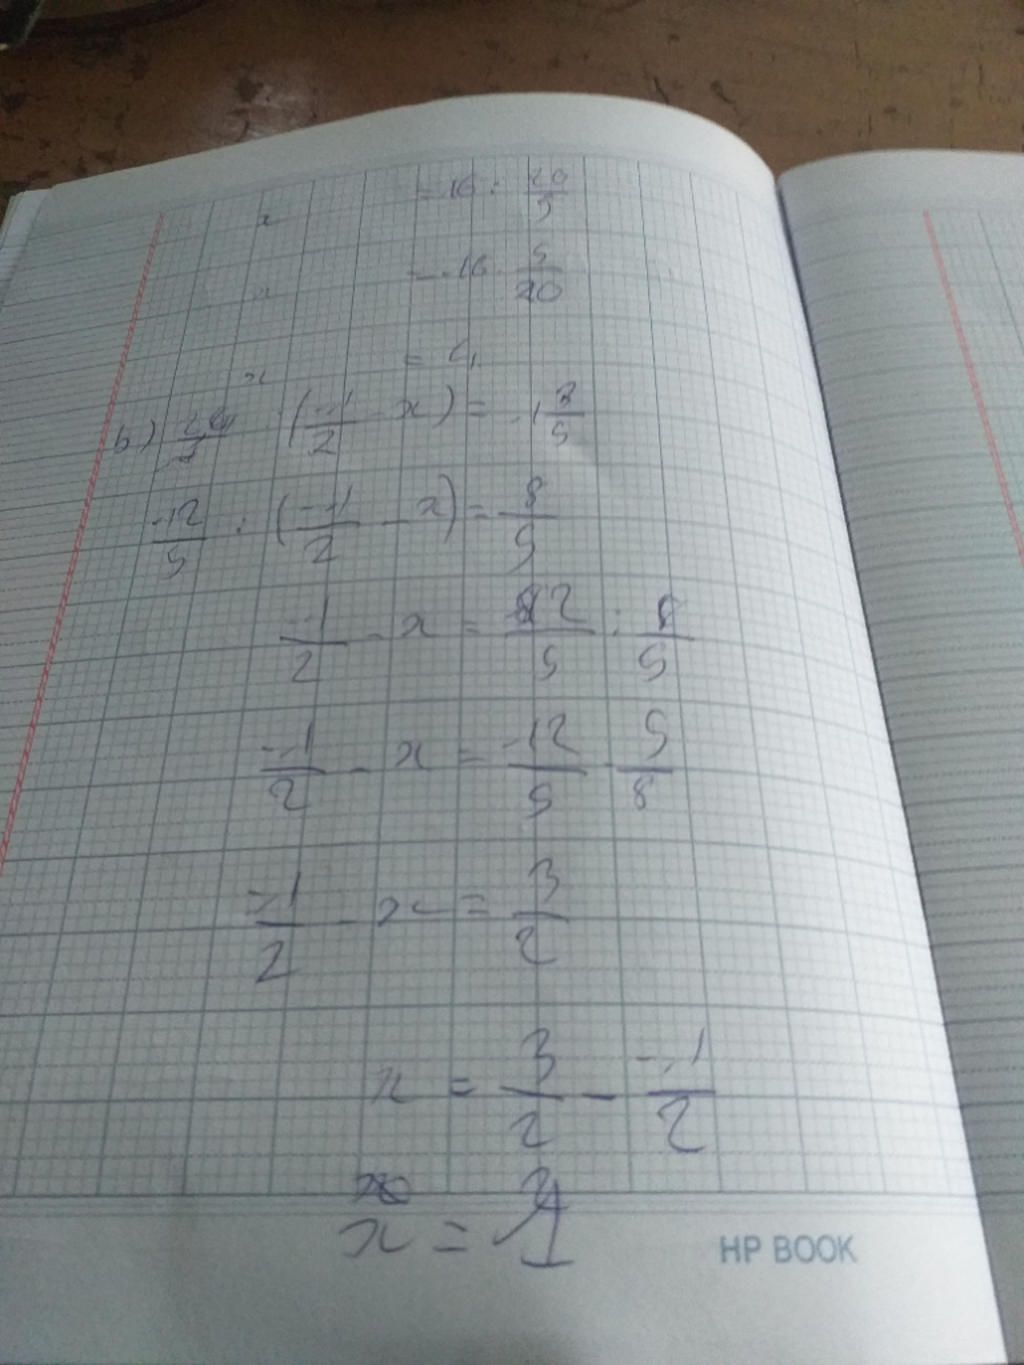 x = 16 : 20/5
x = 16 · 5/20
x = 4
b) : (-1/2 - x) = -1 3/5
-12/5 : (-1/2 - x) = 8/5
-1/2 - x = -12/5 : 8/5
-1/2 - x = -12/5 · 5/8
-1/2 - x = 3/2
x = 3/2 - -1/2
x =
HP BOOK